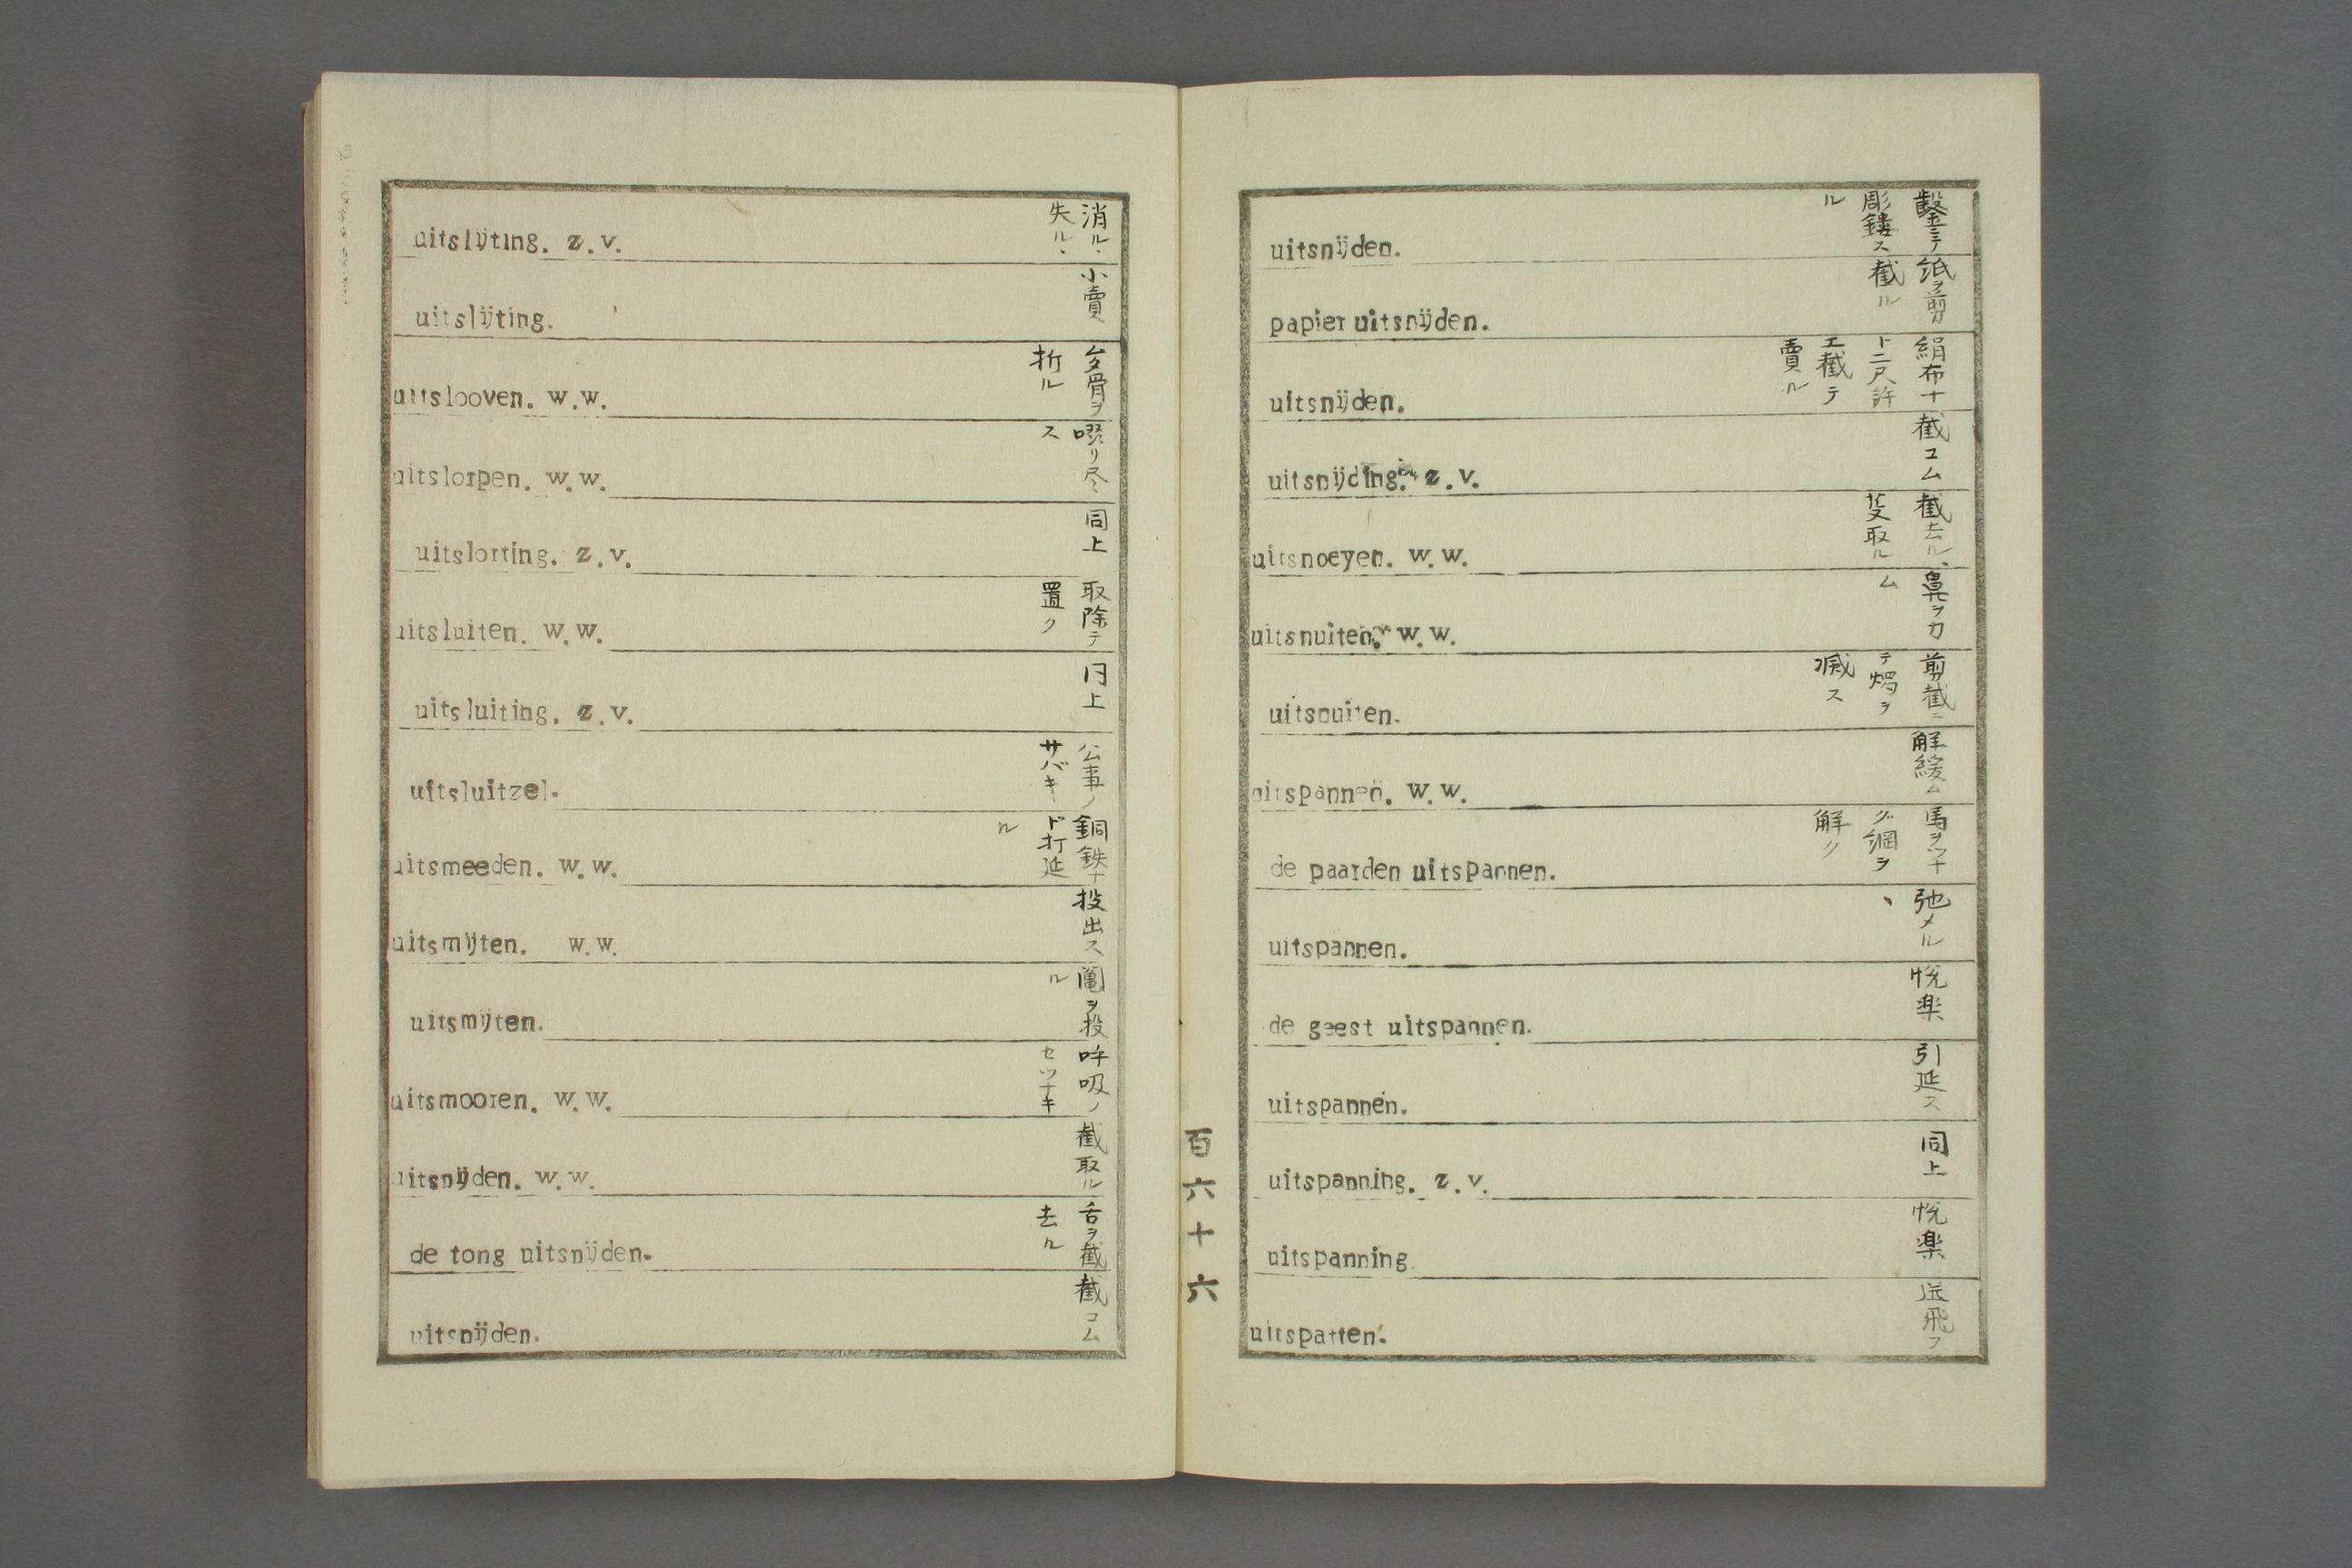 uitslijting. z.v. 消ル、失ル、
uitslijting. 小賣
uitslooven. w.w. 身骨ヲ折ル
uitslorpen. w.w. 啜リ尽ス
uitslorting. z.v. 同上
uitsluiten. w.w. 取除テ置ク
uitsluiting. z.v. 同上
uitsluitzel. 公事ノサバキ
uitsmeeden. w.w. 銅鉄ナド打延ル
uitsmijten. w.w. 投出ス
uitsmijten. 鬮ヲ投ル
uitsmooren. w.w. 呼吸ノセツナキ
uitsnijden. w.w. 截取ル
de tong uitsnijden. 舌ヲ截去ル
uitsnijden. 截コム
百六十六
uitsnijden. 鑿ニテ彫鏤スル
papier uitsnijden. 紙ヲ剪截ル
uitsnijden. 絹布ナト二尺許エ截テ賣ル
uitsnijding. z.v. 截コム
uitsnoeyen. w.w. 截去ル、芟取ル
uitsnuiten. w.w. 鼻ヲカム
uitsnuiten. 剪截ニテ燭ヲ滅ス
uitspannen. w.w. 解緩ム
de paarden uitspannen. 馬ヲツナグ綱ヲ解ク
uitspannen. 弛メル、
de geest uitspannen. 悦楽
uitspannen. 引延ス
uitspanning. z.v. 同上
uitspanning 悦楽
uitspatten. 迸飛フ